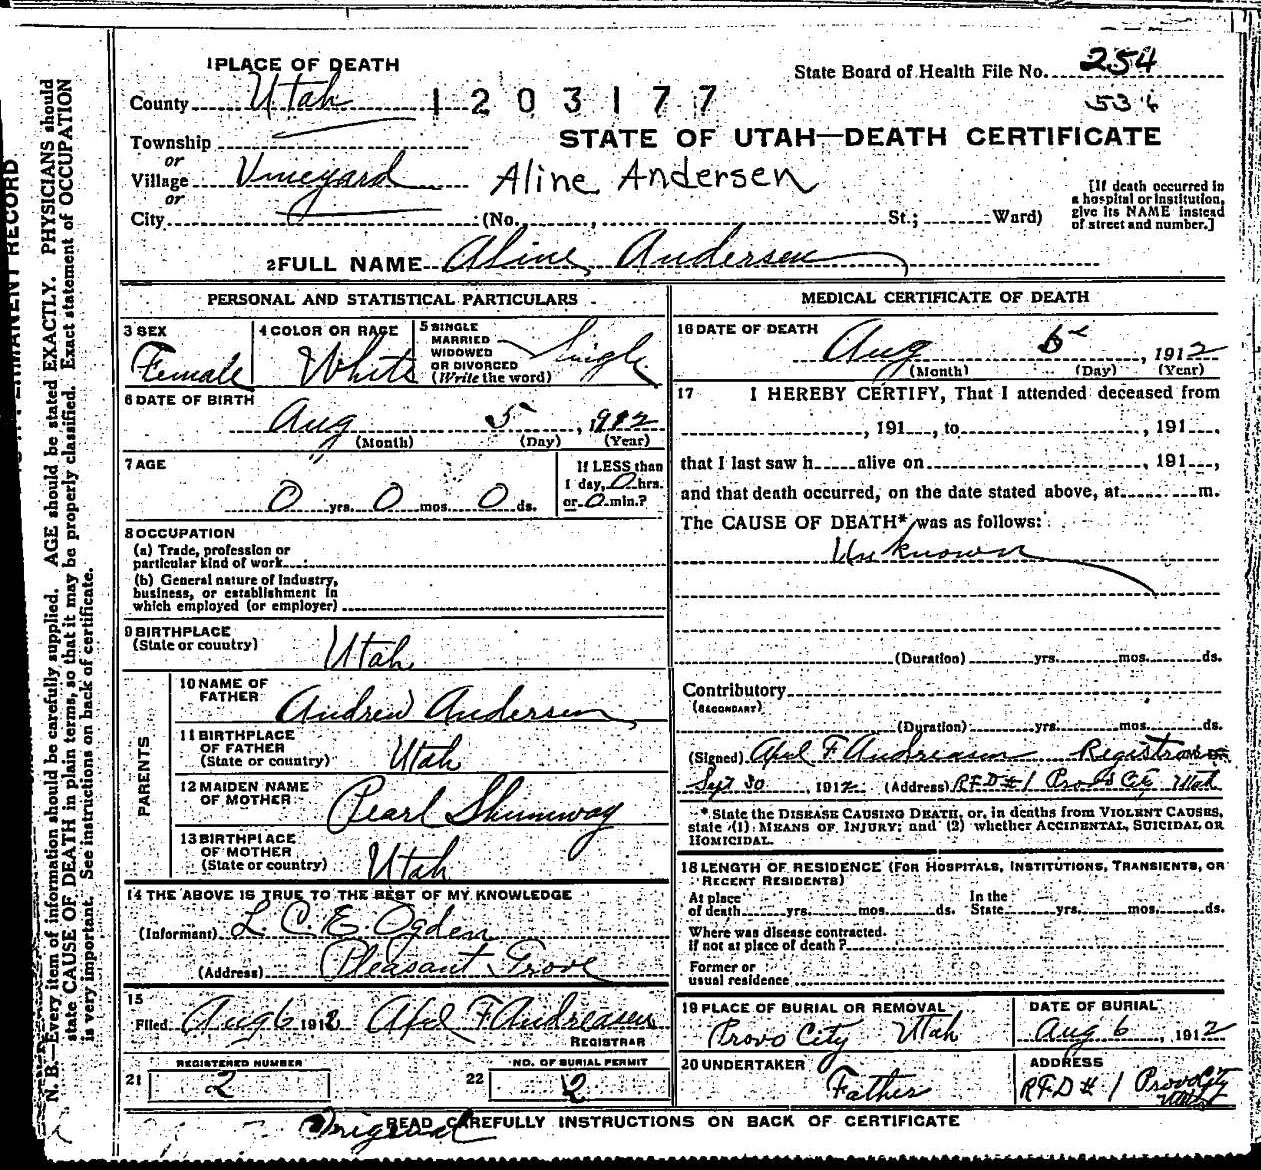 1 PLACE OF DEATH
State Board of Health File No. 254
County Utah 1203177
536
STATE OF UTAH—DEATH CERTIFICATE
Township
or
Village Vineyard Aline Andersen
or
City (No. , St.; Ward)
[If death occurred in
a hospital or institution,
give its NAME instead
of street and number.]
2 FULL NAME Aline Andersen
PERSONAL AND STATISTICAL PARTICULARS
3 SEX
Female
4 COLOR OR RACE
White
5 SINGLE
MARRIED
WIDOWED
OR DIVORCED
(Write the word)
Single
6 DATE OF BIRTH
Aug 5, 1912
(Month) (Day) (Year)
7 AGE
0 yrs. 0 mos. 0 ds.
If LESS than
1 day, 0 hrs.
or 0 min.?
8 OCCUPATION
(a) Trade, profession or
particular kind of work
(b) General nature of Industry,
business, or establishment in
which employed (or employer)
9 BIRTHPLACE
(State or country)
Utah
PARENTS
10 NAME OF
FATHER
Andrew Andersen
11 BIRTHPLACE
OF FATHER
(State or country)
Utah
12 MAIDEN NAME
OF MOTHER
Pearl Shumway
13 BIRTHPLACE
OF MOTHER
(State or country)
Utah
14 THE ABOVE IS TRUE TO THE BEST OF MY KNOWLEDGE
(Informant) L. C. E. Ogden
(Address) Pleasant Grove
15
Filed Aug 6 1912 F Andreasen
REGISTRAR
REGISTERED NUMBER
21 2
NO. OF BURIAL PERMIT
22 2
MEDICAL CERTIFICATE OF DEATH
16 DATE OF DEATH
Aug 5, 1912
(Month) (Day) (Year)
17 I HEREBY CERTIFY, That I attended deceased from
, 191 , to , 191 ,
that I last saw h alive on , 191 ,
and that death occurred, on the date stated above, at m.
The CAUSE OF DEATH* was as follows:
Unknown
(Duration) yrs. mos. ds.
Contributory
(SECONDARY)
(Duration) yrs. mos. ds.
(Signed) F Andreasen Registrar
Sept 30, 1912 (Address) RFD #1 Provo City Utah
* State the DISEASE CAUSING DEATH, or, in deaths from VIOLENT CAUSES,
state (1) MEANS OF INJURY; and (2) whether ACCIDENTAL, SUICIDAL OR
HOMICIDAL.
18 LENGTH OF RESIDENCE (FOR HOSPITALS, INSTITUTIONS, TRANSIENTS, OR
RECENT RESIDENTS)
At place
of death yrs. mos. ds.
In the
State yrs. mos. ds.
Where was disease contracted.
If not at place of death?
Former or
usual residence
19 PLACE OF BURIAL OR REMOVAL
Provo City Utah
DATE OF BURIAL
Aug 6, 1912
20 UNDERTAKER
Father
ADDRESS
RFD #1 Provo City
Utah
Original
READ CAREFULLY INSTRUCTIONS ON BACK OF CERTIFICATE
PERMANENT RECORD
N. B.—Every item of information should be carefully supplied. AGE should be stated EXACTLY. PHYSICIANS should
state CAUSE OF DEATH in plain terms, so that it may be properly classified. Exact statement of OCCUPATION
is very important. See instructions on back of certificate.